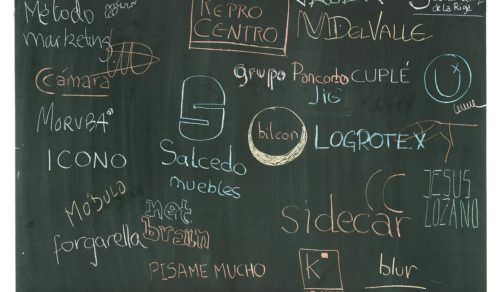 Método
marketing
REPRO
CENTRO
MDELVALLE
de la Riga
Cámara
grupo Pancorbo
JiG
CUPLÉ
U
MORUBA
S
bilcon
LOGROTEX
ICONO
Salcedo
muebles
MÓDULO
net
brain
sidecar
JESUS
LOZANO
forgarella
PISAME MUCHO
K
blur